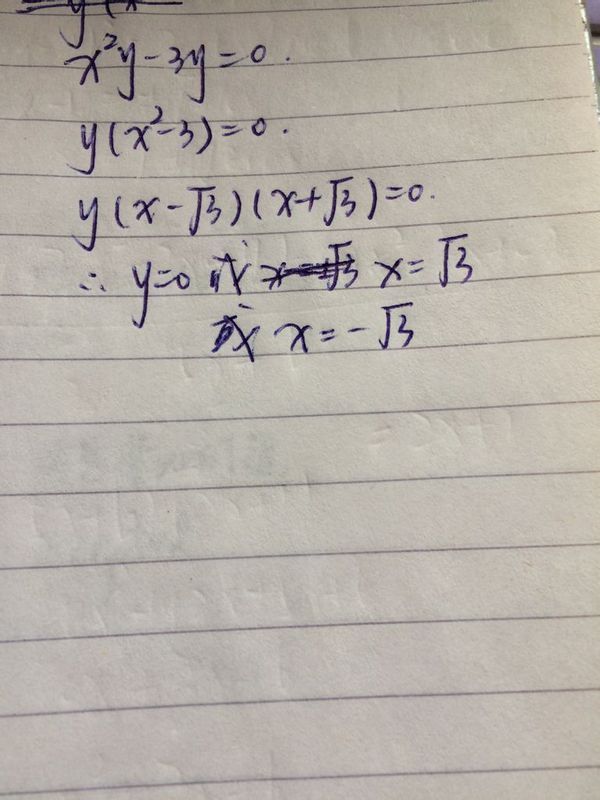 x²y-3y=0.
y(x²-3)=0.
y(x-√3)(x+√3)=0.
∴ y=0 或 x=√3
或 x=-√3